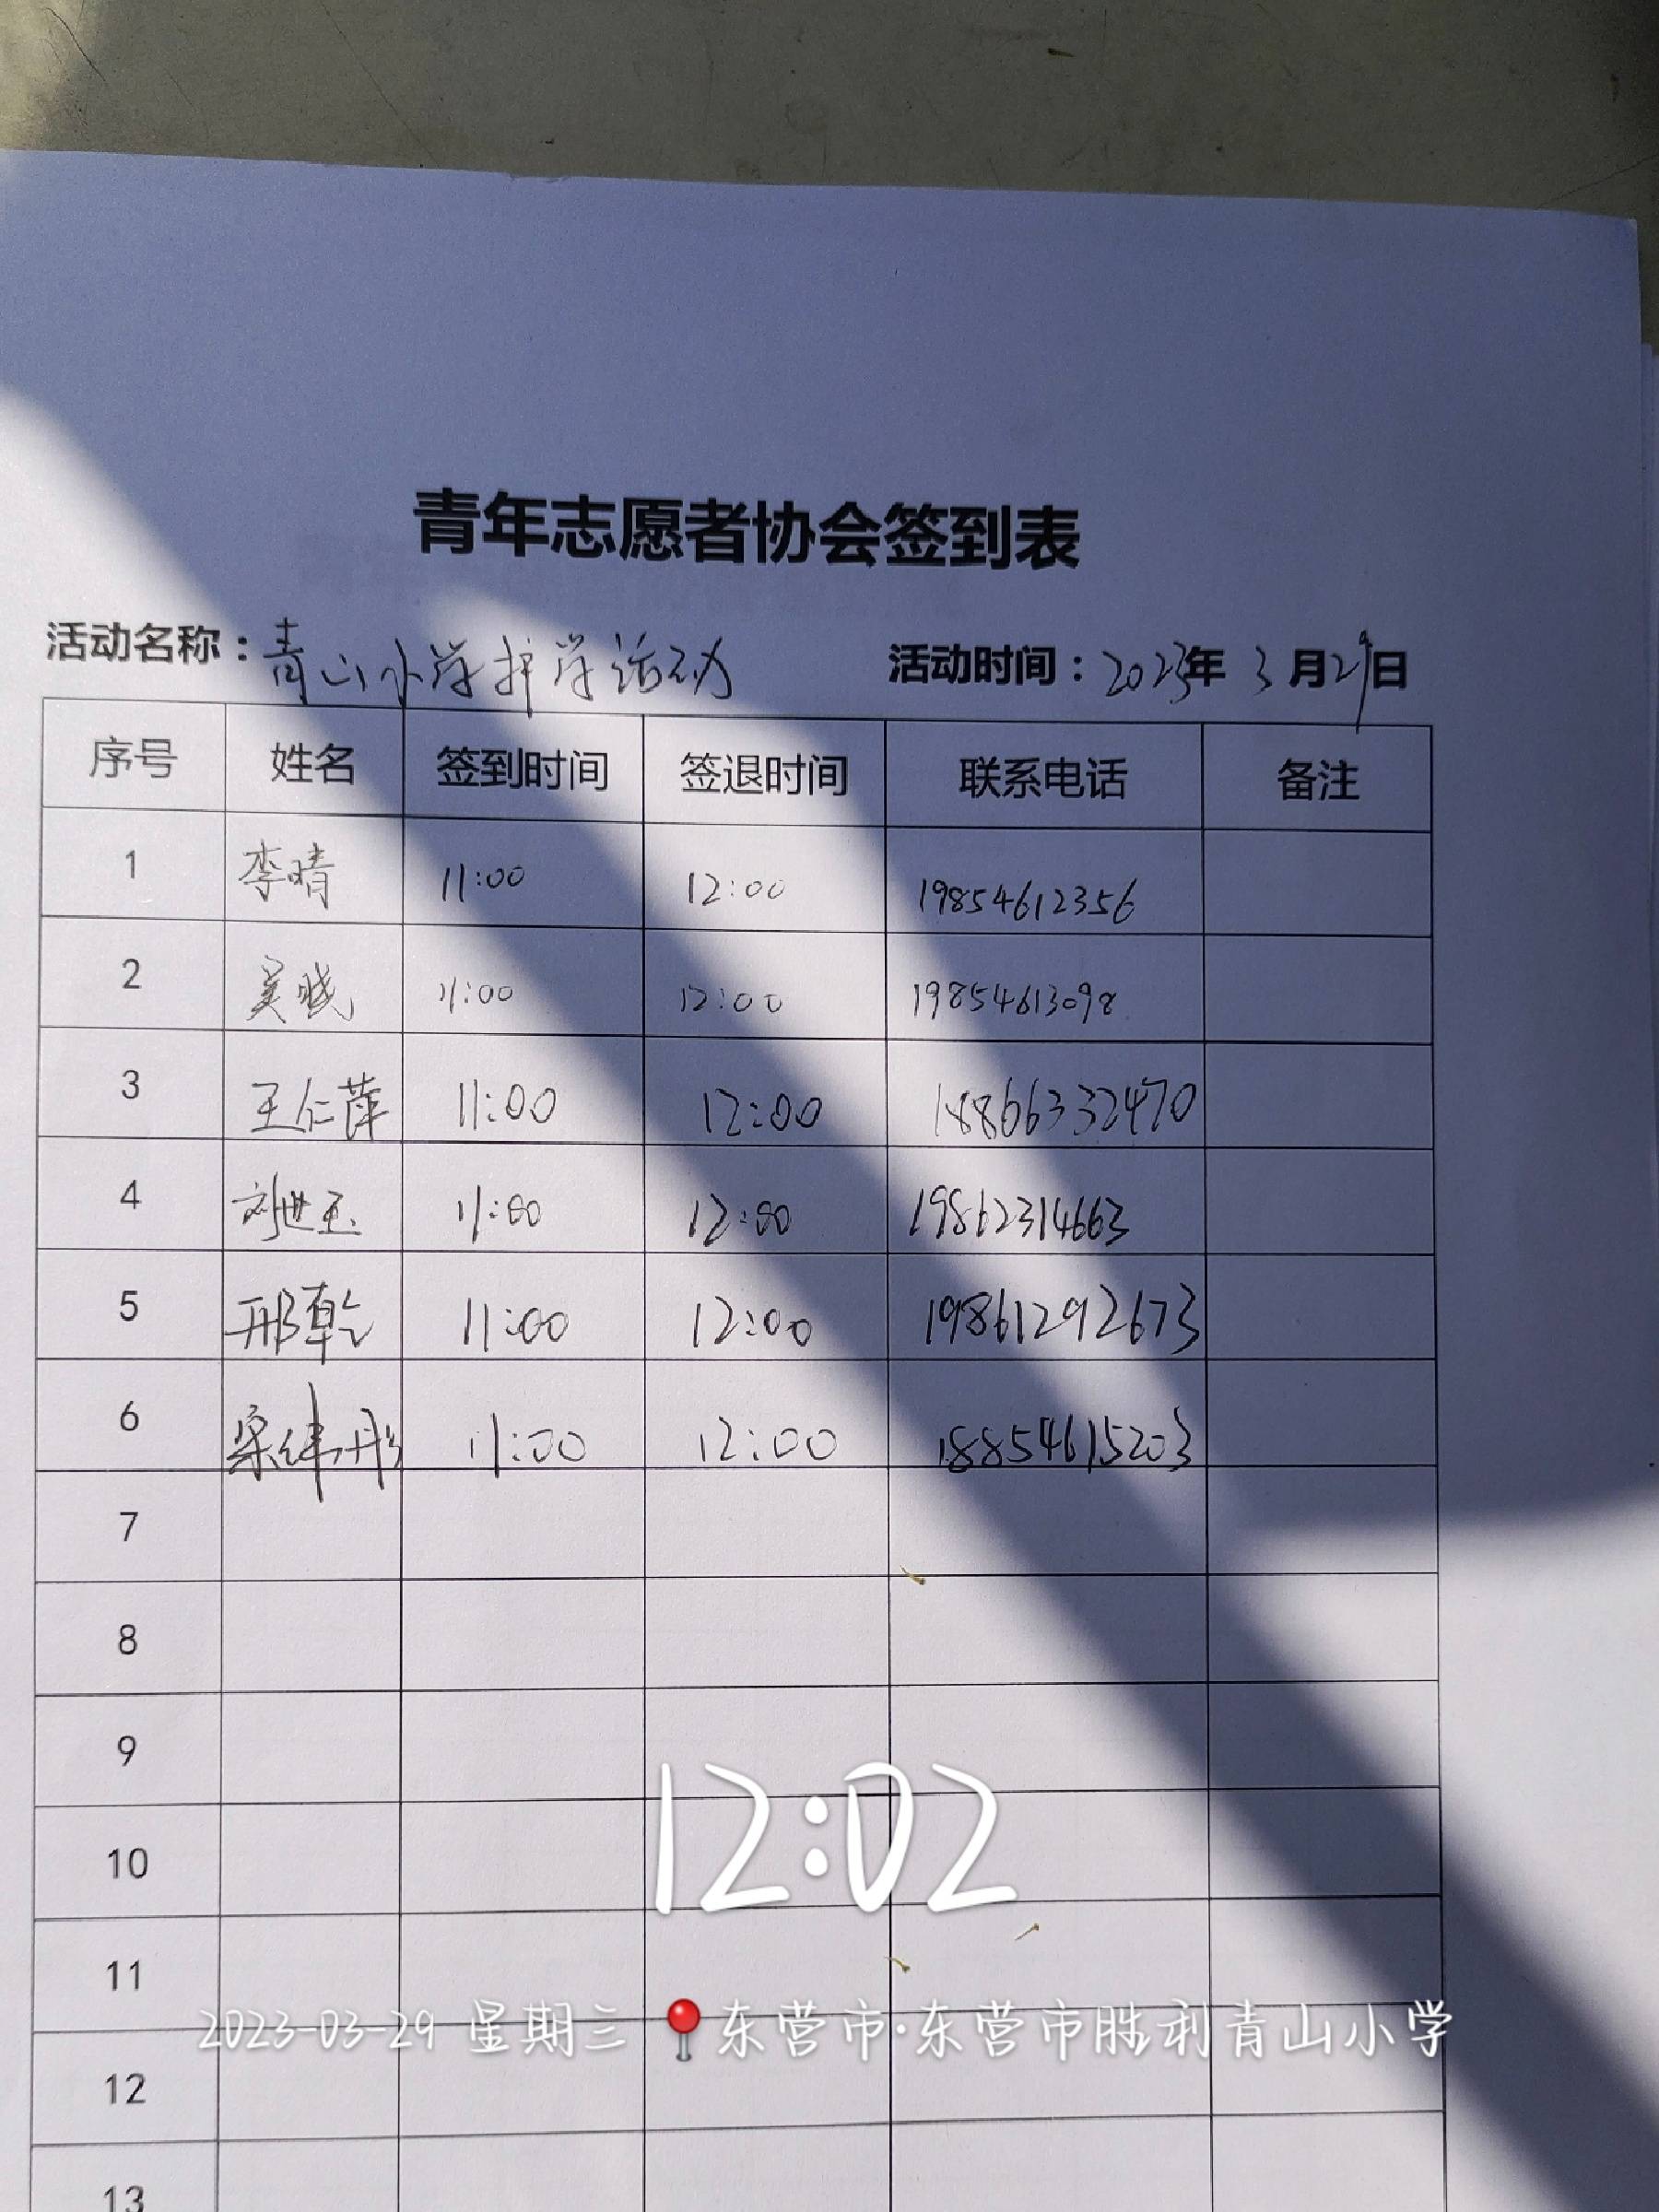 青年志愿者协会签到表
活动名称：青山小学护学活动 活动时间：2023年 3月29日
序号 姓名 签到时间 签退时间 联系电话 备注
1 李晴 11:00 12:00 19854612356
2 吴晓 11:00 12:00 19854613098
3 王仁萍 11:00 12:00 18866332470
4 刘世玉 11:00 12:00 19862314663
5 邢乾 11:00 12:00 19861292673
6 梁纬彤 11:00 12:00 18854615203
7
8
9
12:02
10
11
2023-03-29 星期三 东营市·东营市胜利青山小学
12
13